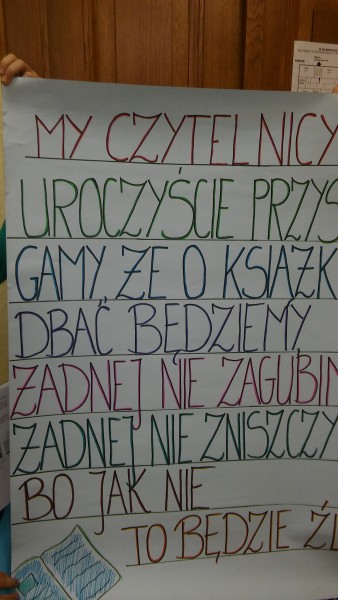 MY CZYTELNICY
UROCZYŚCIE PRZYS
GAMY ŻE O KSIĄŻK
DBAĆ BĘDZIEMY
ŻADNEJ NIE ZAGUBIM
ŻADNEJ NIE ZNISZCZY
BO JAK NIE
TO BĘDZIE ŹL